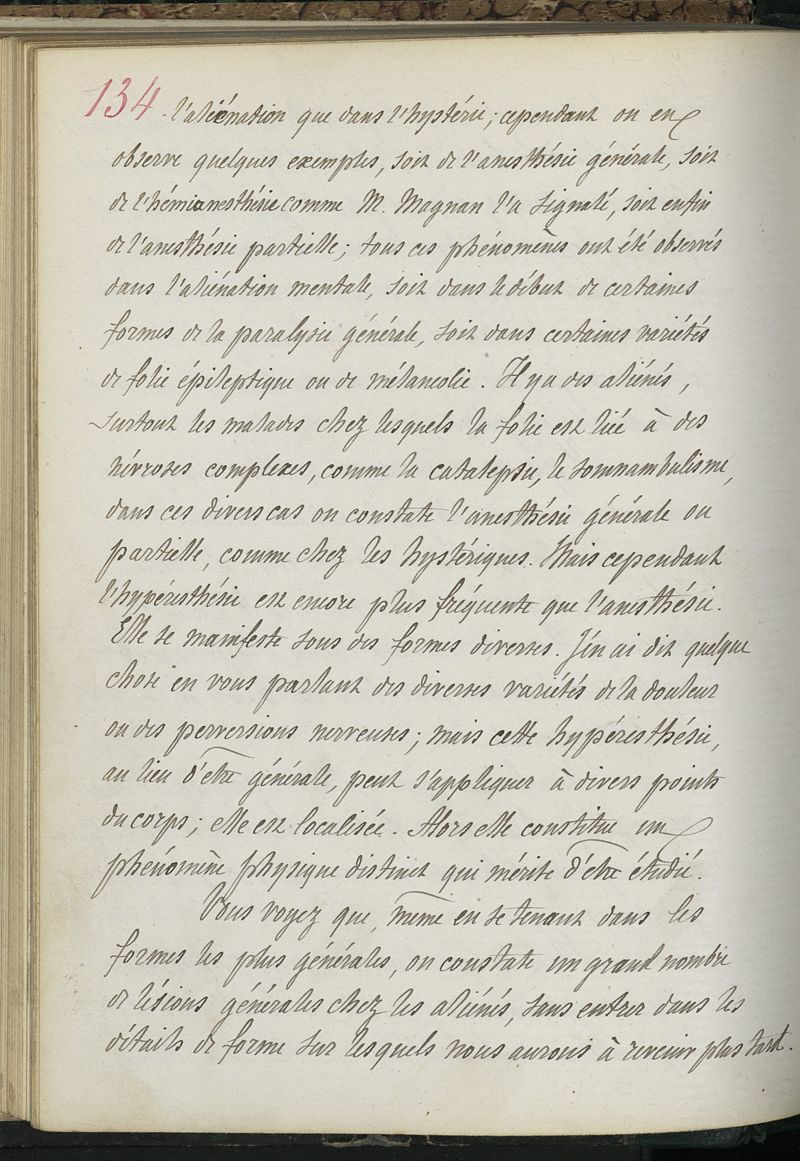 134
l'aliénation que dans l'hystérie; cependant on en
observe quelques exemples, soit de l'anesthésie générale, soit
de l'hémianesthésie comme M. Magnan l'a signalé, soit enfin
de l'anesthésie partielle; tous ces phénomènes ont été observés
dans l'aliénation mentale, soit dans le début de certaines
formes de la paralysie générale, soit dans certaines variétés
de folie épileptique ou de mélancolie. Il y a des aliénés,
surtout les malades chez lesquels la folie est liée à des
névroses complexes, comme la catalepsie, le somnambulisme,
dans ces divers cas on constate l'anesthésie générale ou
partielle, comme chez les hystériques. Mais cependant
l'hypéresthésie est encore plus fréquente que l'anesthésie.
Elle se manifeste sous des formes diverses. J'en ai dit quelque
chose en vous parlant des diverses variétés de la douleur
ou des perversions nerveuses; mais cette hypéresthésie,
au lieu d'être générale, peut s'appliquer à divers points
du corps; elle est localisée. Alors elle constitue un
phénomène physique distinct qui mérite d'être étudié.
Vous voyez que, même en se tenant dans les
formes les plus générales, on constate un grand nombre
de lésions générales chez les aliénés, sans entrer dans les
détails de forme sur lesquels nous aurons à revenir plus tard.